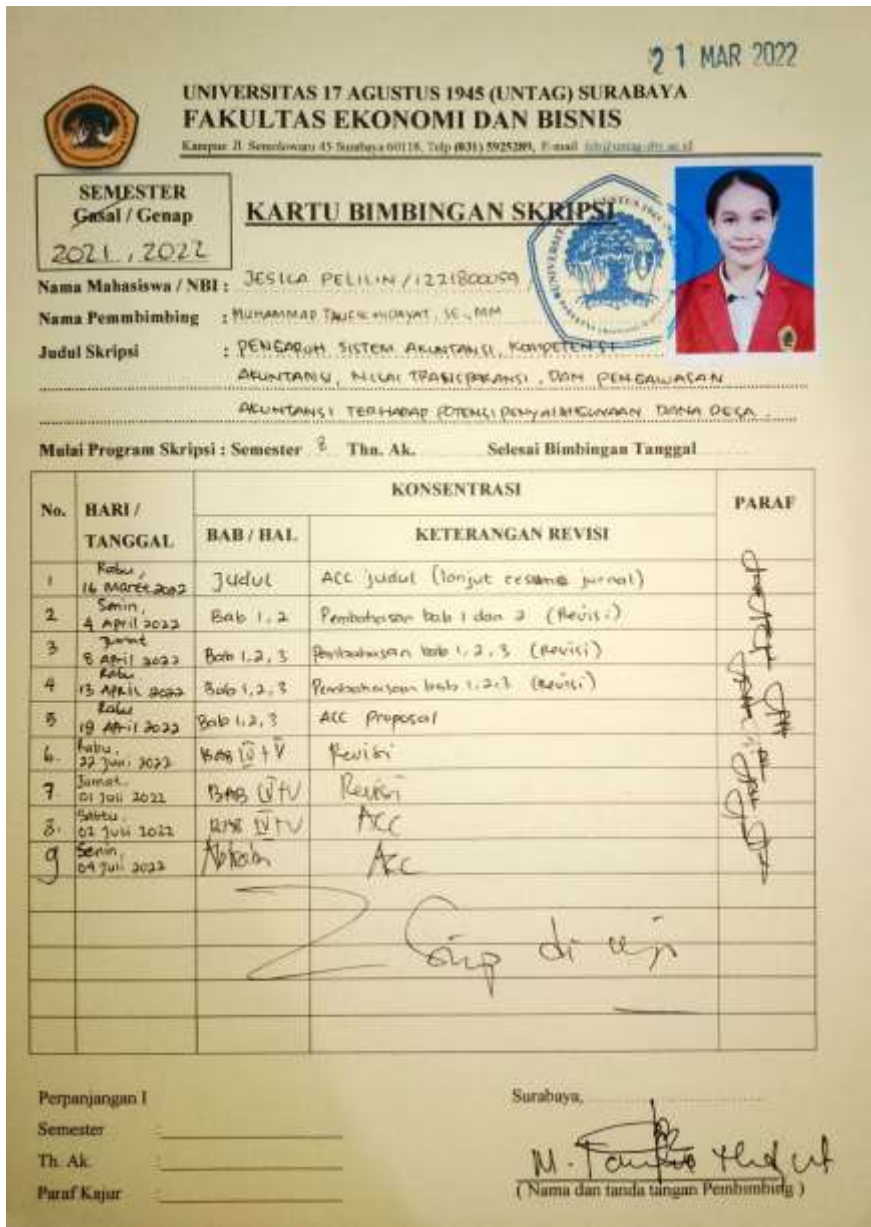 21 MAR 2022
UNIVERSITAS 17 AGUSTUS 1945 (UNTAG) SURABAYA
FAKULTAS EKONOMI DAN BISNIS
Kampus Jl. Semolowaru 45 Surabaya 60118, Telp (031) 5925289, E-mail
SEMESTER
Gasal / Genap
2021 , 2022
KARTU BIMBINGAN SKRIPSI
Nama Mahasiswa / NBI : JESILA PELILIN / 1221800059
Nama Pemmbimbing : MUHAMMAD HIDAYAT, SE., MM
Judul Skripsi : PENGARUH SISTEM AKUNTANSI, KOMPETENSI
AKUNTANSI, NILAI TRANSPARANSI, DAN PENGAWASAN
AKUNTANSI TERHADAP POTENSI PENYALAHGUNAAN DANA DESA.
Mulai Program Skripsi : Semester 8 Thn. Ak. Selesai Bimbingan Tanggal
No. HARI / TANGGAL KONSENTRASI PARAF
BAB / HAL KETERANGAN REVISI
1 Rabu, 16 Maret 2022 Judul ACC judul (lanjut resume jurnal)
2 Senin, 4 April 2022 Bab 1, 2 Pembahasan bab 1 dan 2 (Revisi)
3 Jumat 8 April 2022 Bab 1, 2, 3 Pembahasan bab 1, 2, 3 (Revisi)
4 Rabu 13 April 2022 Bab 1, 2, 3 Pembahasan bab 1, 2, 3 (Revisi)
5 Rabu April 2022 Bab 1, 2, 3 ACC Proposal
6. Rabu, 22 Juni 2022 BAB IV + V Revisi
7 Jumat, 01 Juli 2022 BAB IV + V Revisi
8. Sabtu, 02 Juli 2022 BAB IV + V ACC
9 Senin, 04 Juli 2022 ACC
Siap di uji
Perpanjangan I
Semester :
Th. Ak. :
Paraf Kajur :
Surabaya,
( Nama dan tanda tangan Pembimbing )